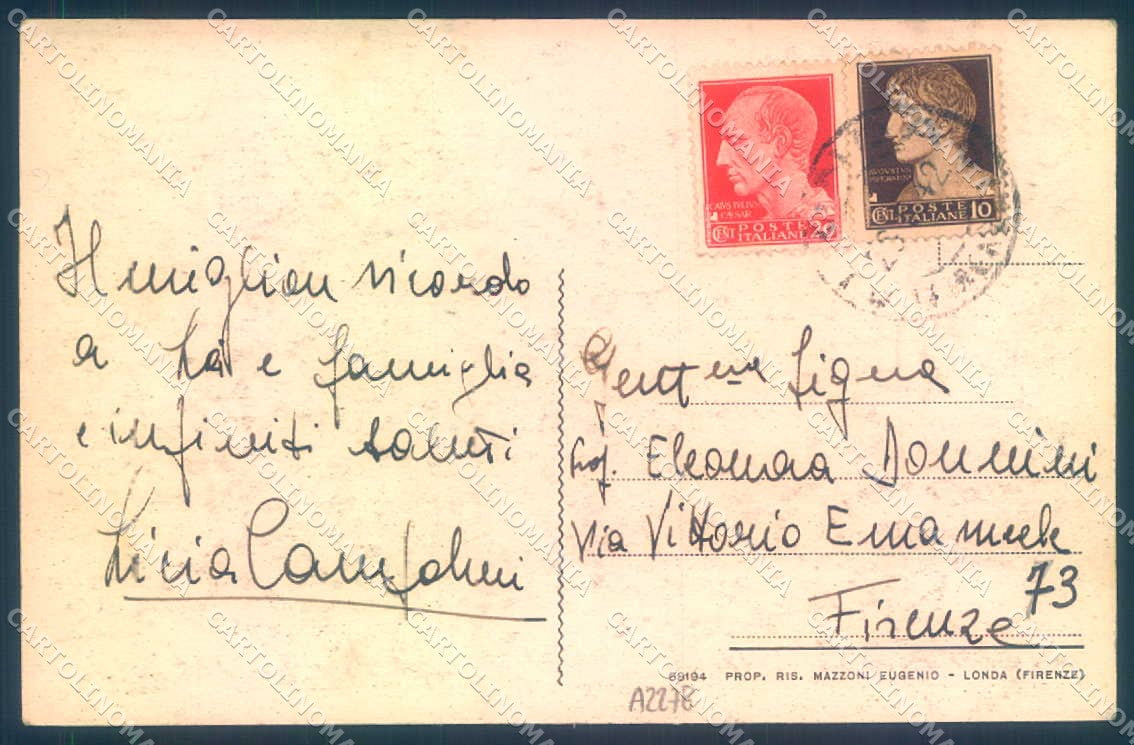 CAIVS IVLIVS
CAESAR
CENT. POSTE ITALIANE 20
AVGVSTVS
IMPERATOR
CENT. POSTE ITALIANE 10
42
Il miglior ricordo
a Lei e famiglia
e infiniti saluti
Licia
Gent.ma Sig.na
Prof. Eleonora Donnini
Via Vittorio Emanuele
73
Firenze
69194 PROP. RIS. MAZZONI EUGENIO - LONDA (FIRENZE)
A2278
CARTOLINOMANIA